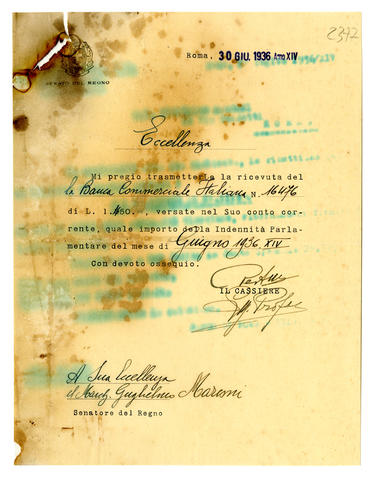 2342
Roma, 30 GIU. 1936 Anno XIV
SENATO DEL REGNO
Eccellenza
Mi pregio trasmetterLe la ricevuta del
la Banca Commerciale Italiana N. 16476
di L. 1.450. , versate nel Suo conto cor-
rente, quale importo della Indennità Parla-
mentare del mese di Giugno 1936 XIV
Con devoto ossequio.
IL CASSIERE
A Sua Eccellenza
il March. Guglielmo Marconi
Senatore del Regno